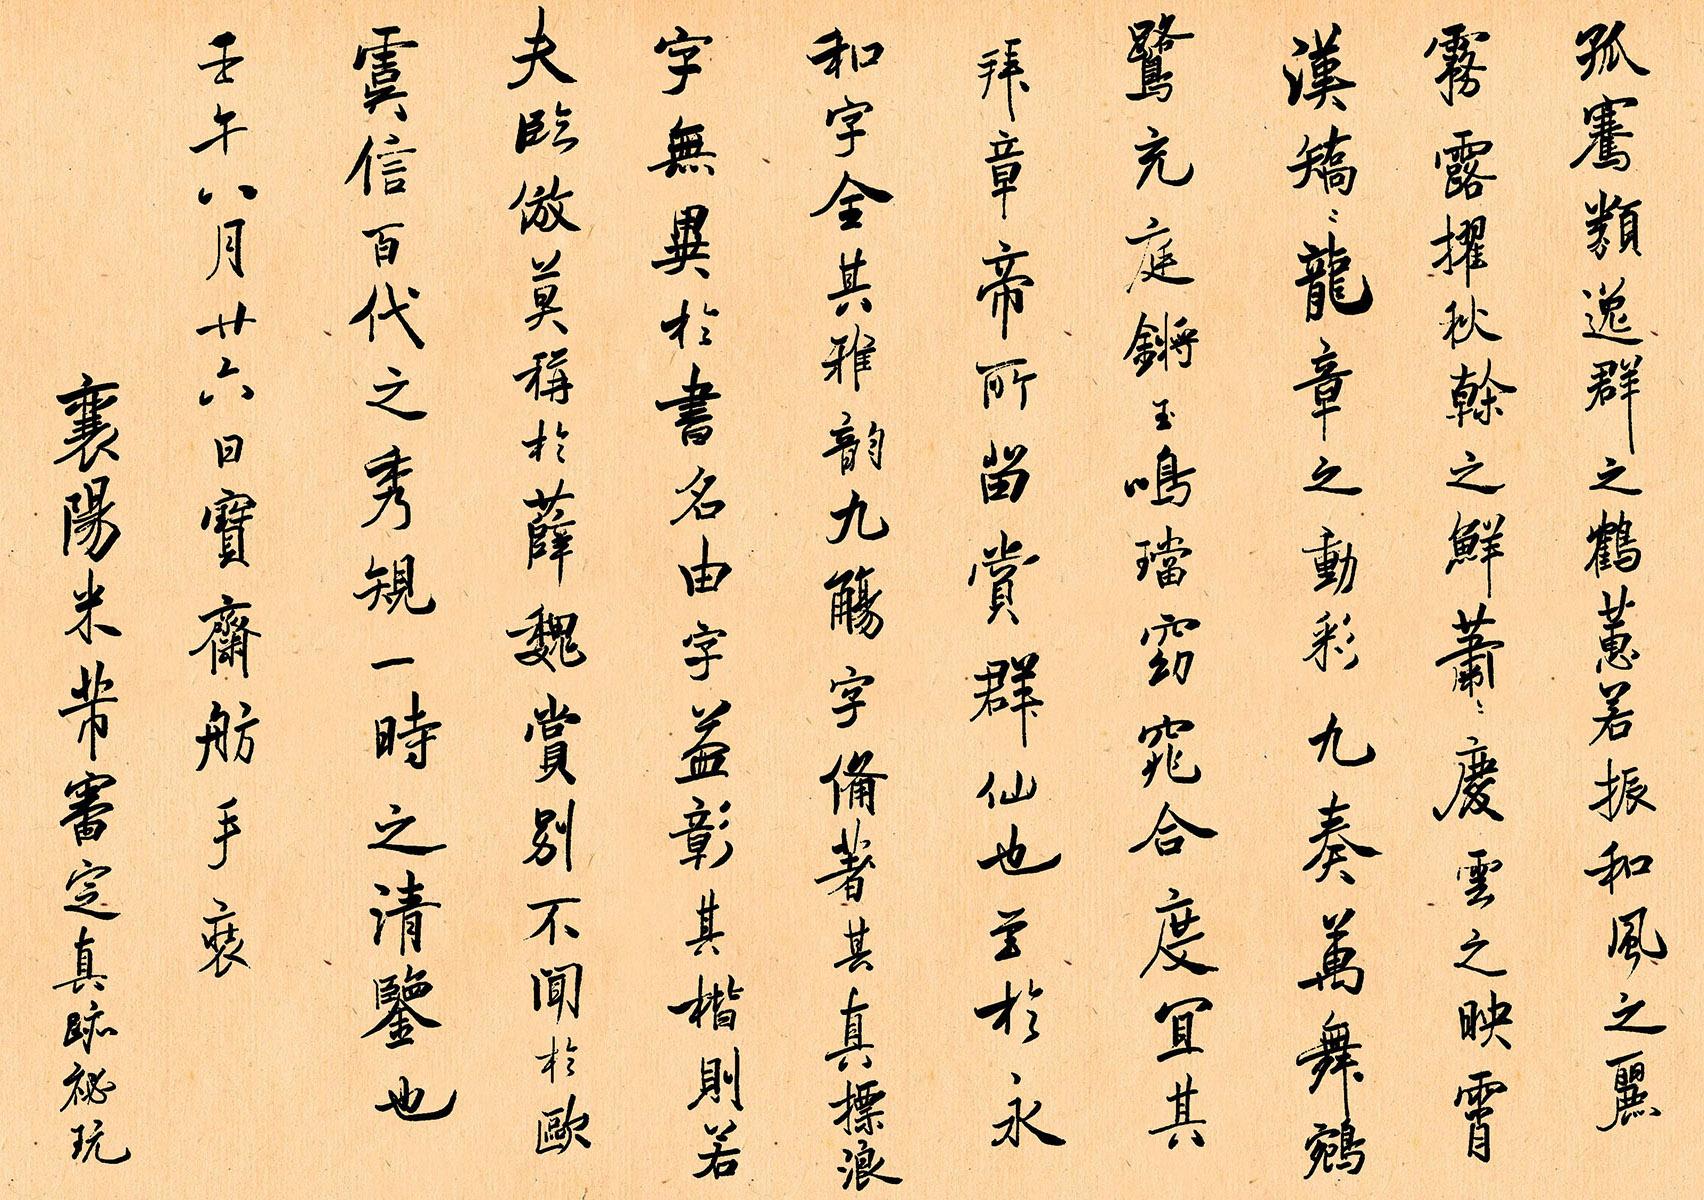 孤騫類逸群之鶴蕙若振和風之麗
霧露擢秋幹之鮮蕭〻慶雲之映霄
漢矯〻龍章之動彩九奏萬舞鵷
鷺充庭鏘玉鳴璫窈窕合度宜其
拜章帝所留賞群仙也至於永
和字全其雅韵九觴字備著其真標浪
字無異於書名由字益彰其楷則若
夫臨倣莫稱於薛魏賞別不聞於歐
虞信百代之秀規一時之清鑒也
壬午八月廿六日寶齋舫手裝
襄陽米芾審定真跡祕玩